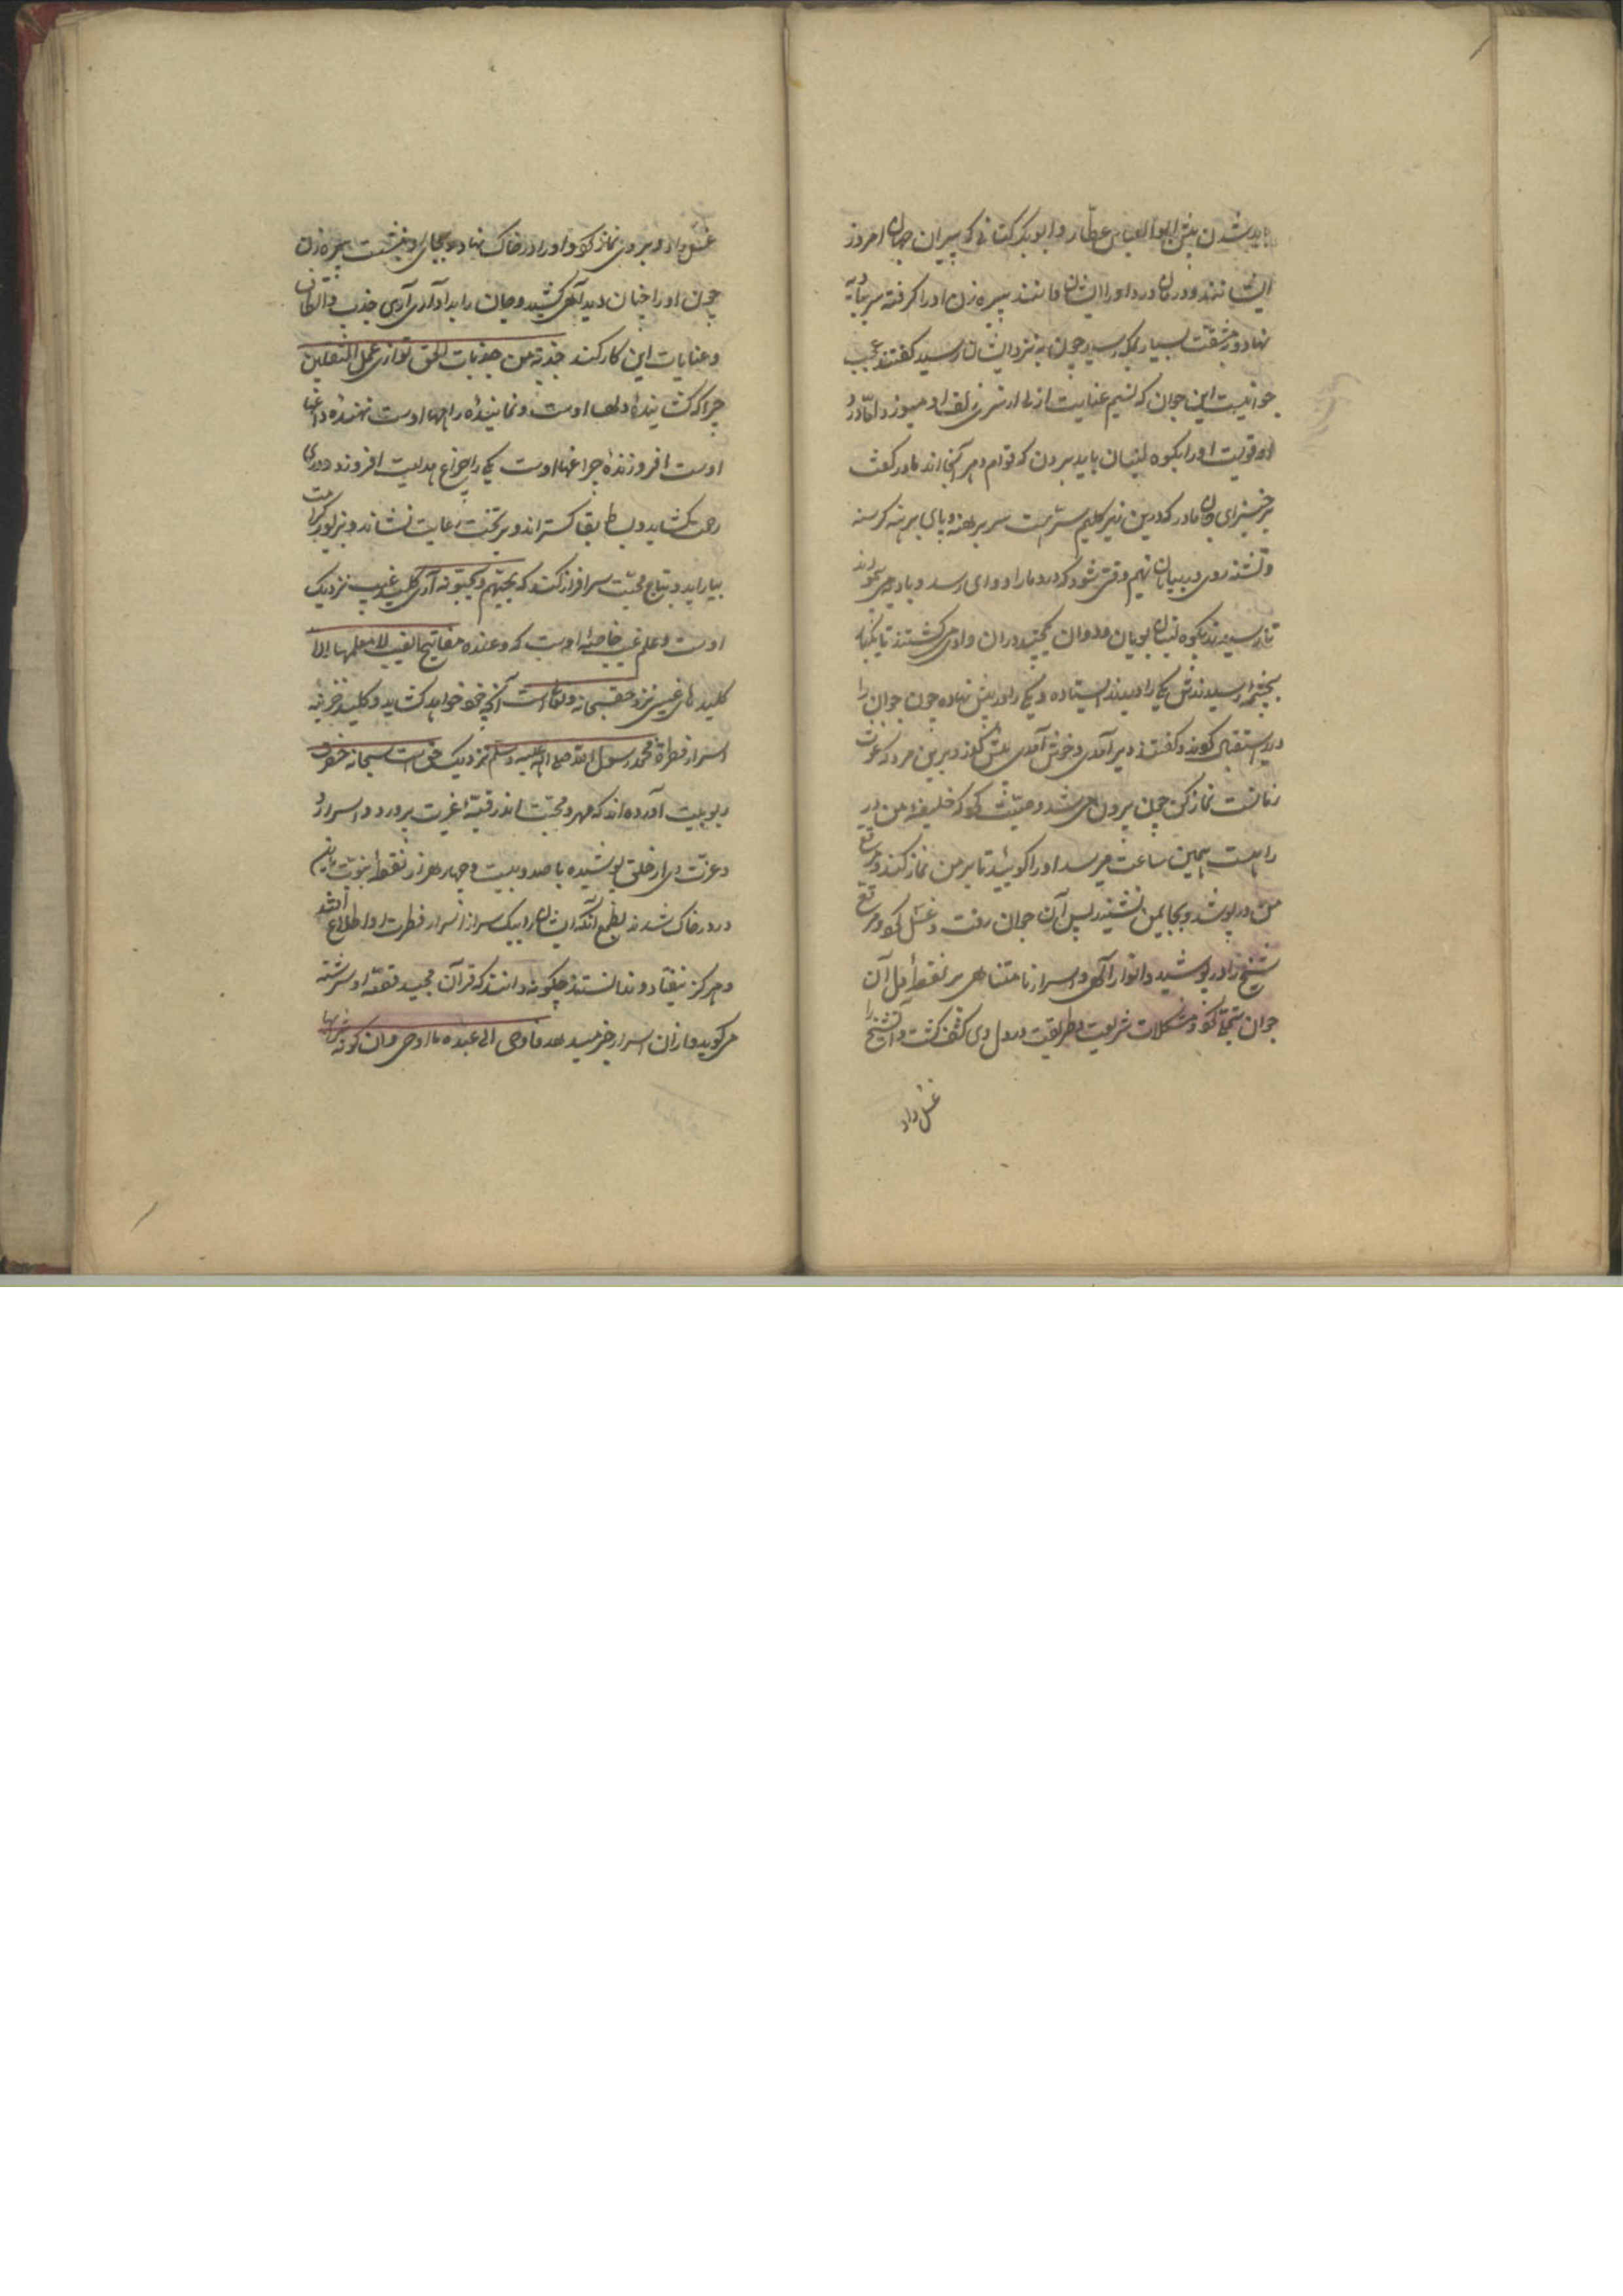 باید شدن پیش ابو العباس عطار و ابو بکر کتانی که پیران جهان امروز
ایشانند و درمان درد او را ایشان دانند پیره زن او را کرفته سر بادیه
نهاد و بمشقت بسیار بمکه رسید چون به نزد ایشان رسید کفتند عجب
جوانیست این جوان که نسیم عنایت ازلی از سر زلف او میوزد اما درد
او قویست او را بکوه لبنان باید بردن که قوام دهر آنجا اند مادر کفت
برخیز ای جان مادر که درین زیر کلیم سریست سر برهنه و پای برهنه کرسنه
و تشنه روی در بیابان نهیم وقتی شود که درد ما را دوای رسد و بادیه می
تا رسیدند بکوه لبنان پویان و دوان در آن وادی می کشتند تا ناکاه
بچشمه رسیدند شش یکی را دیدند ایستاده و یکی را در پیش نهاده چون جوان را
دیدند استقبال کردند و کفتند دیر آمدی و خوش آمدی پیش رو و برین مرد که غوث
زمانست نماز کن چون بیرون می شد وصیت کرد که خلیفه من در
راهست همین ساعت میرسد او را کویید تا بر من نماز کند و مرقع
من در پوشد و بجای من نشیند پس آن جوان رفت و غسل کرد و مرقع
شیخ را در پوشید و انوار الهی و اسرار نامتناهی بر نقطه دل آن
جوان تجلی کرد و مشکلات شریعت و طریقت در دل وی کشف کشت و آن شیخ را
غسل داد
غسل داد و بر وی نماز کرد و او را در خاک نهاد و بجای او بنشست پیره زن
چون او را چنان دید آهی کشید و جان را بداد آری آری جذب و التفات
و عنایات این کار کند جذبة من جذبات الحق توازی عمل الثقلین
چرا که کشاینده دلها اوست و نماینده راهها اوست نهنده داغها
اوست افروزنده چراغها اوست یکی را چراغ هدایت افروزد و در
رحمت بکشاید و بساط بقا کستراند و بر تخت رعایت نشاند و بزیور کرامت
بیاراید و بتاج محبت سرافراز کند که یحبهم و یحبونه آری کلید غیب نزدیک
اوست و علم غیب خاصه اوست که و عنده مفاتیح الغیب لا یعلمها الا
کلیدهای غیبی نزد حق سبحانه و تعالی است آنچه خود خواهد کشاید و کلید خزینه
اسرار فطرة محمد رسول الله صلی الله علیه وسلم نزدیک حق است سبحانه حضرت
ربوبیت آورده اند که مهر و محبت اندر قبه غیرت پرورد و اسرار
و عزت وی از خلق پوشیده با صد و بیست و چهار هزار نقطه نبوت
درد در خاک شدند بطمع آنکه ایشان را بیک سر از اسرار فطرت او اطلاع افتد
و هرکز نیفتاد و ندانستند چکونه دانند که قرآن مجید قصه او سربسته
میکوید و از آن اسرار خبر میدهد فاوحی الی عبده ما اوحی